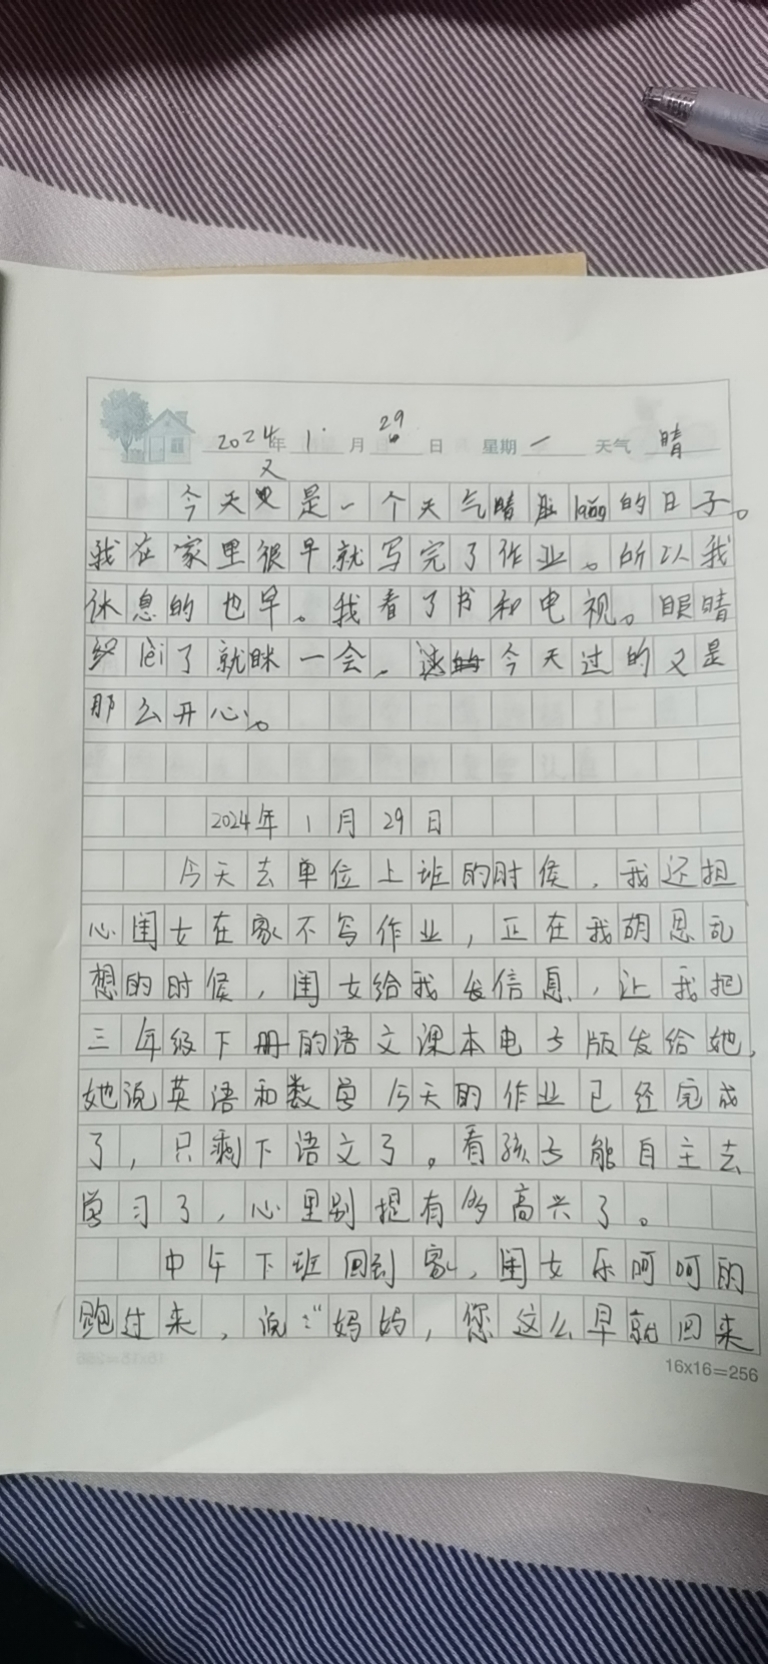 2024年 1月 29日 星期一 天气 晴
今天又是一个天气晴 lǎng的日子。
我在家里很早就写完了作业。所以我
休息的也早。我看了书和电视。眼睛
lèi了就眯一会。今天过的又是
那么开心。
2024年 1月 29日
今天去单位上班的时候，我还担
心闺女在家不写作业，正在我胡思乱
想的时候，闺女给我发信息，让我把
三年级下册的语文课本电子版发给她，
她说英语和数学今天的作业已经完成
了，只剩下语文了。看孩子能自主去
学习了，心里别提有多高兴了。
中午下班回到家，闺女乐呵呵的
跑过来，说："妈妈，您这么早就回来
16x16=256